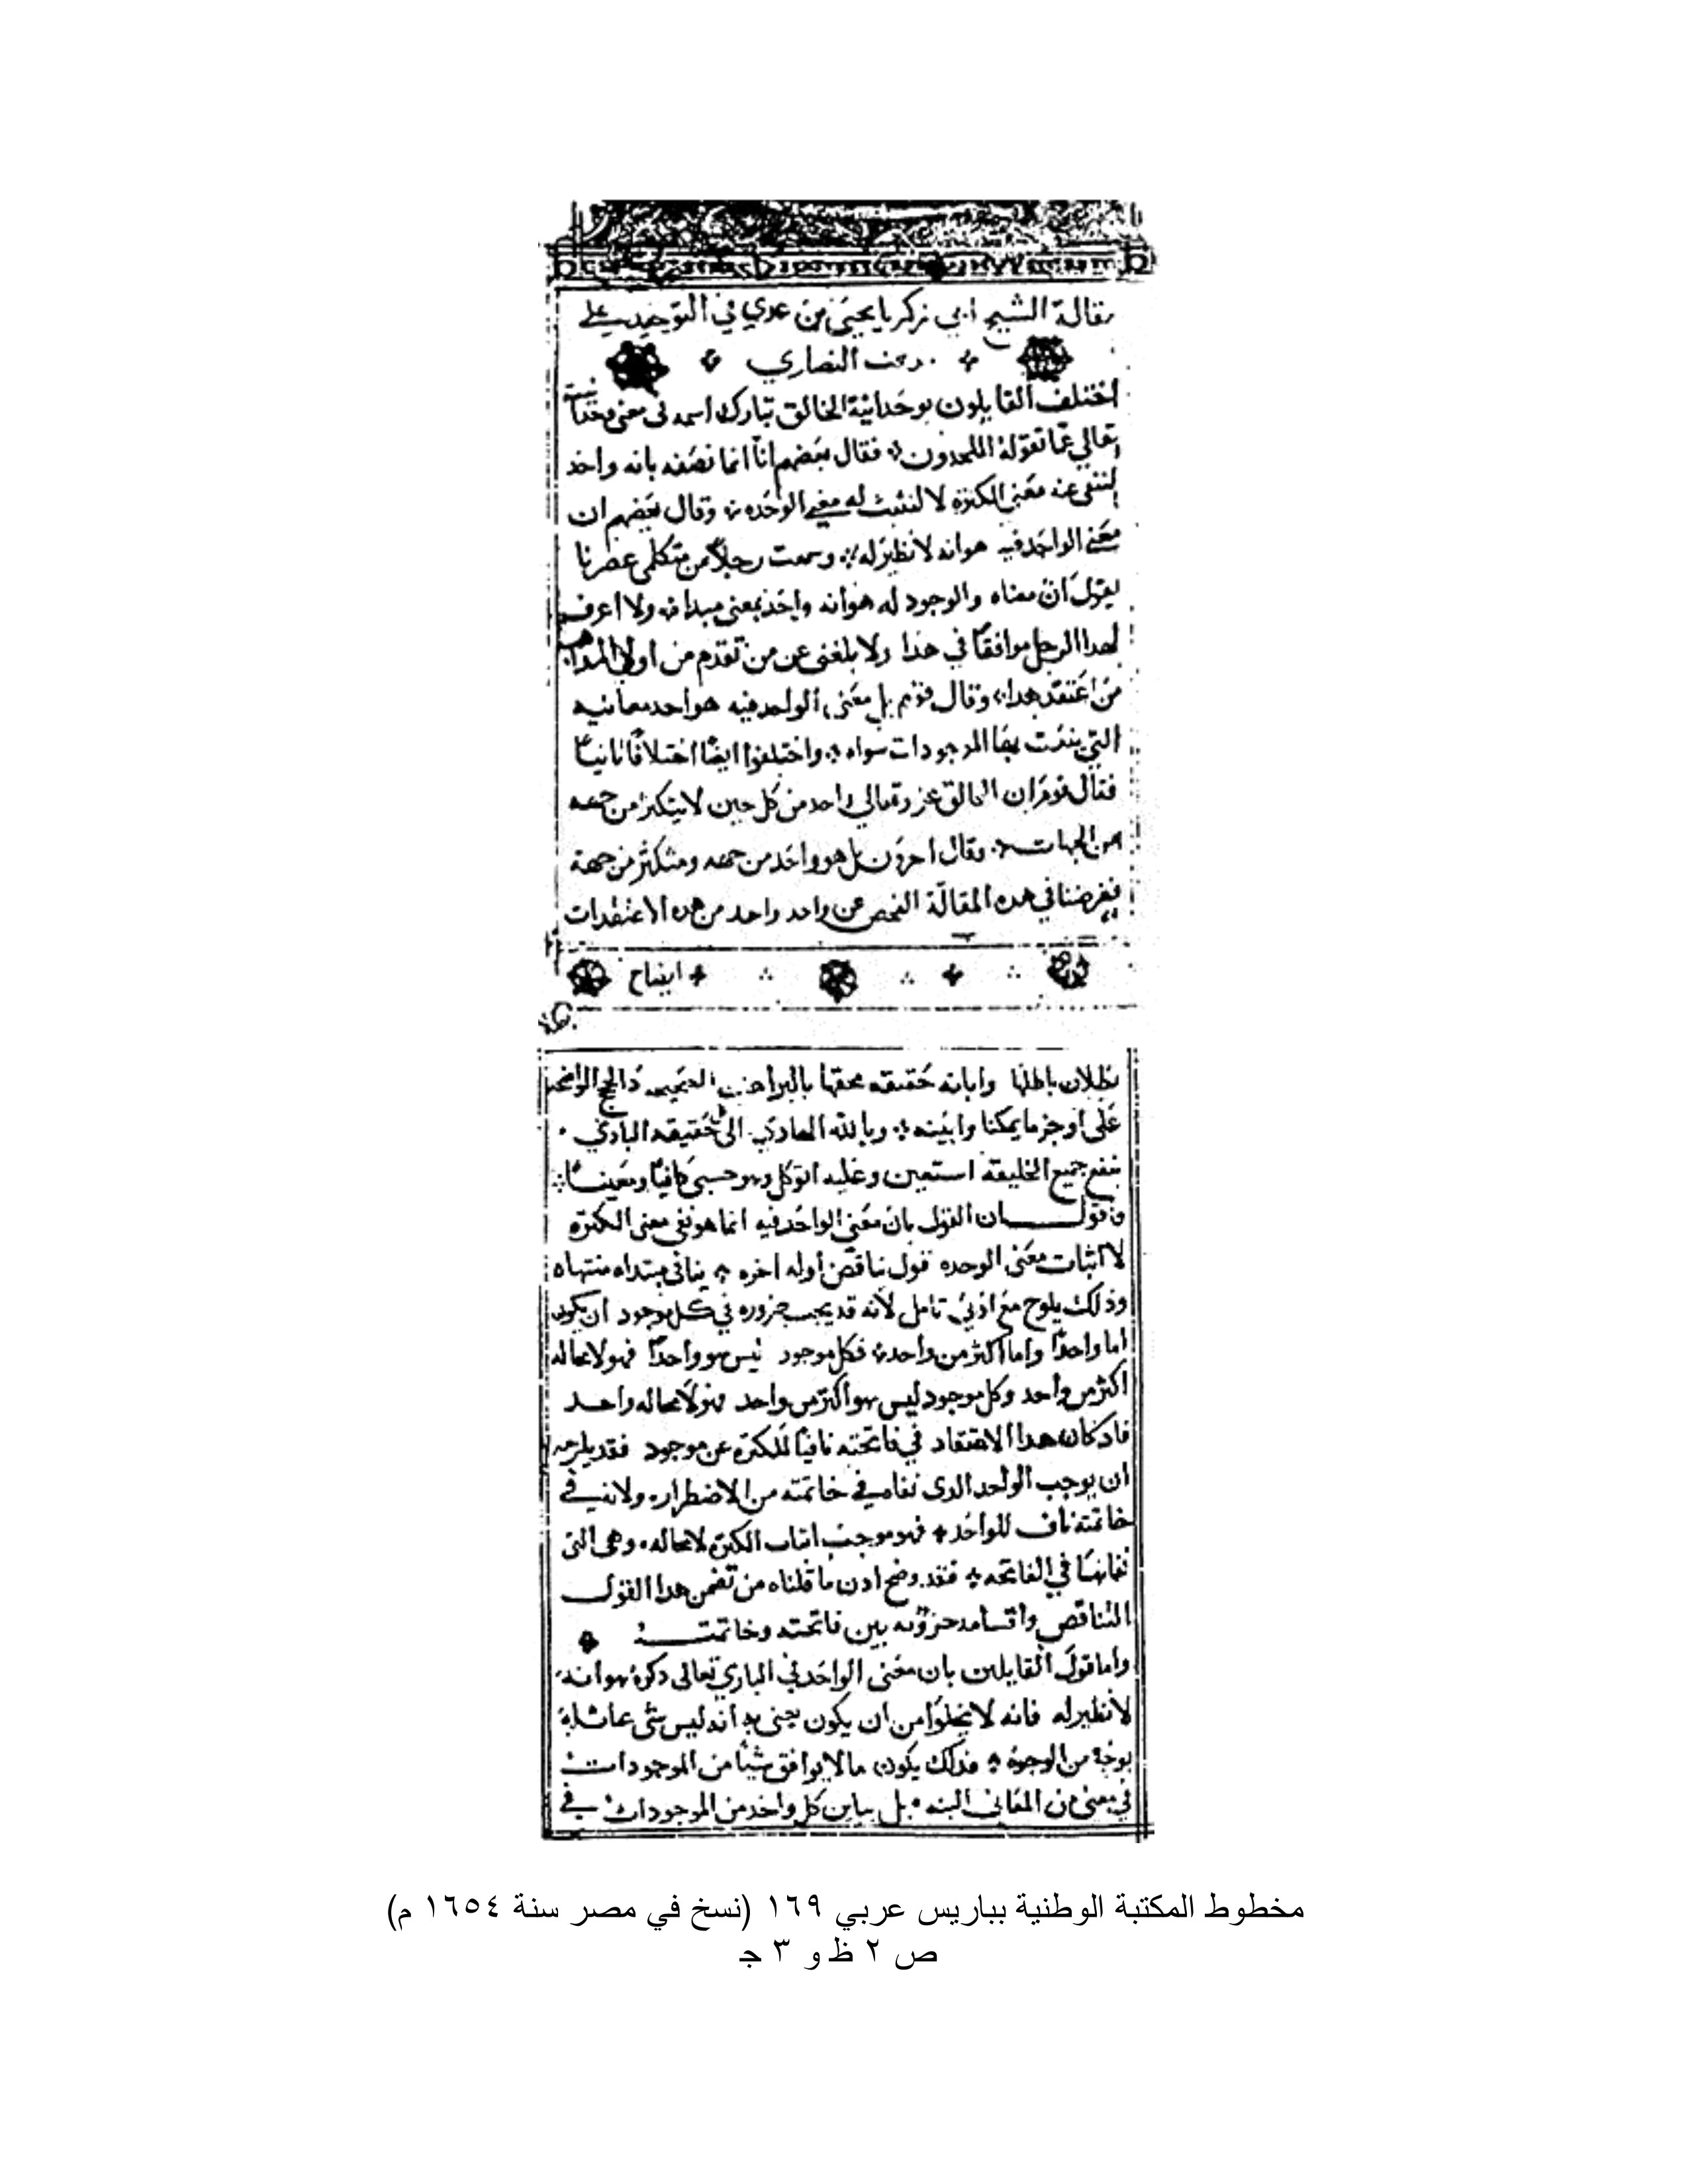 مقالة الشيخ ابي زكريا يحيى بن عدي في التوحيد على
النصاري
اختلف القايلون بوحدانية الخالق تبارك اسمه في معنى وحدانيته
تعالي عما تقوله الملحدون فقال بعضهم انا انما نصفه بانه واحد
لننفي عنه معنى الكثرة لا لنثبت له معنى الوحده وقال بعضهم ان
معنى الواحد فيه هو انه لا نظير له وسمعت رجلاً من متكلمي عصرنا
يقول ان معناه والوجود له هو انه واحد بمعنى مبدا ولا اعرف
لهدا الرجل موافقًا في هدا ولا بلغني عن من تقدم من اولي المداهب
من اعتقد هدا وقال قوم بل معنى الواحد فيه هو احد معانيه
التي ينعت بها الموجودات سواه واختلفوا ايضًا اختلافًا ثانيًا
فقال قوم ان الخالق عز وتعالي واحد من كل حين لا يتكثر من جهه
من الجهات وقال اخرون بل هو واحد من جهه ومتكثر من جهة
فغرضنا في هده المقالة الفحص عن واحد واحد من هده الاعتقادات
ايضاح
بطلان باطلها وابانه حقيقه محقها بالبراهين الصحيحه والحجج الواضحه
على اوجز ما يمكنا وابينه وبالله الهادي الى حقيقه البادي
بنفع جميع الخليقه استعين وعليه اتوكل وهو حسبي كافيًا ومعينًا
ونقول ان القول بان معنى الواحد فيه انما هو نفي معنى الكثره
لا اثبات معنى الوحده قول يناقض أوله اخره ينافي مبتداه منتهاه
وذلك يلوح مع ادنى تامل لأنه قد يجب ضروره في كل موجود ان يكون
اما واحدًا واما اكثر من واحد فكل موجود ليس هو واحدًا فهو لا محاله
اكثر من واحد وكل موجود ليس هو أكثر من واحد فهو لا محاله واحد
فاد كان هدا الاعتقاد في فاتحته نافيًا للكثره عن موجود فقد يلزمه
ان يوجب الواحد الدى نفاه في خاتمته من الاضطرار ولانه في
خاتمته ناف للواحد فهو موجب اثبات الكثره لا محاله وهى التى
نفاها في الفاتحه فقد وضح ادن ما قلناه من تضمن هدا القول
التناقض واقتسامه حزؤيه بين فاتحته وخاتمته
واما قول القايلين بان معنى الواحد في الباري تعالى دكره هو انه
لا نظير له فانه لا يخلوا من ان يكون يعني به أنه ليس شى مما شابه
بوجه من الوجوه فدلك يكون ما لا يوافق شيًا من الموجودات
في معنى من المعاني البته بل يباين كل واحد من الموجودات في
مخطوط المكتبة الوطنية بباريس عربي ١٦٩ (نسخ في مصر سنة ١٦٥٤ م)
ص ٢ ظ و ٣ ج